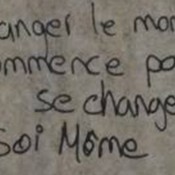 anger le mon
ommence pa
se change
soi Même